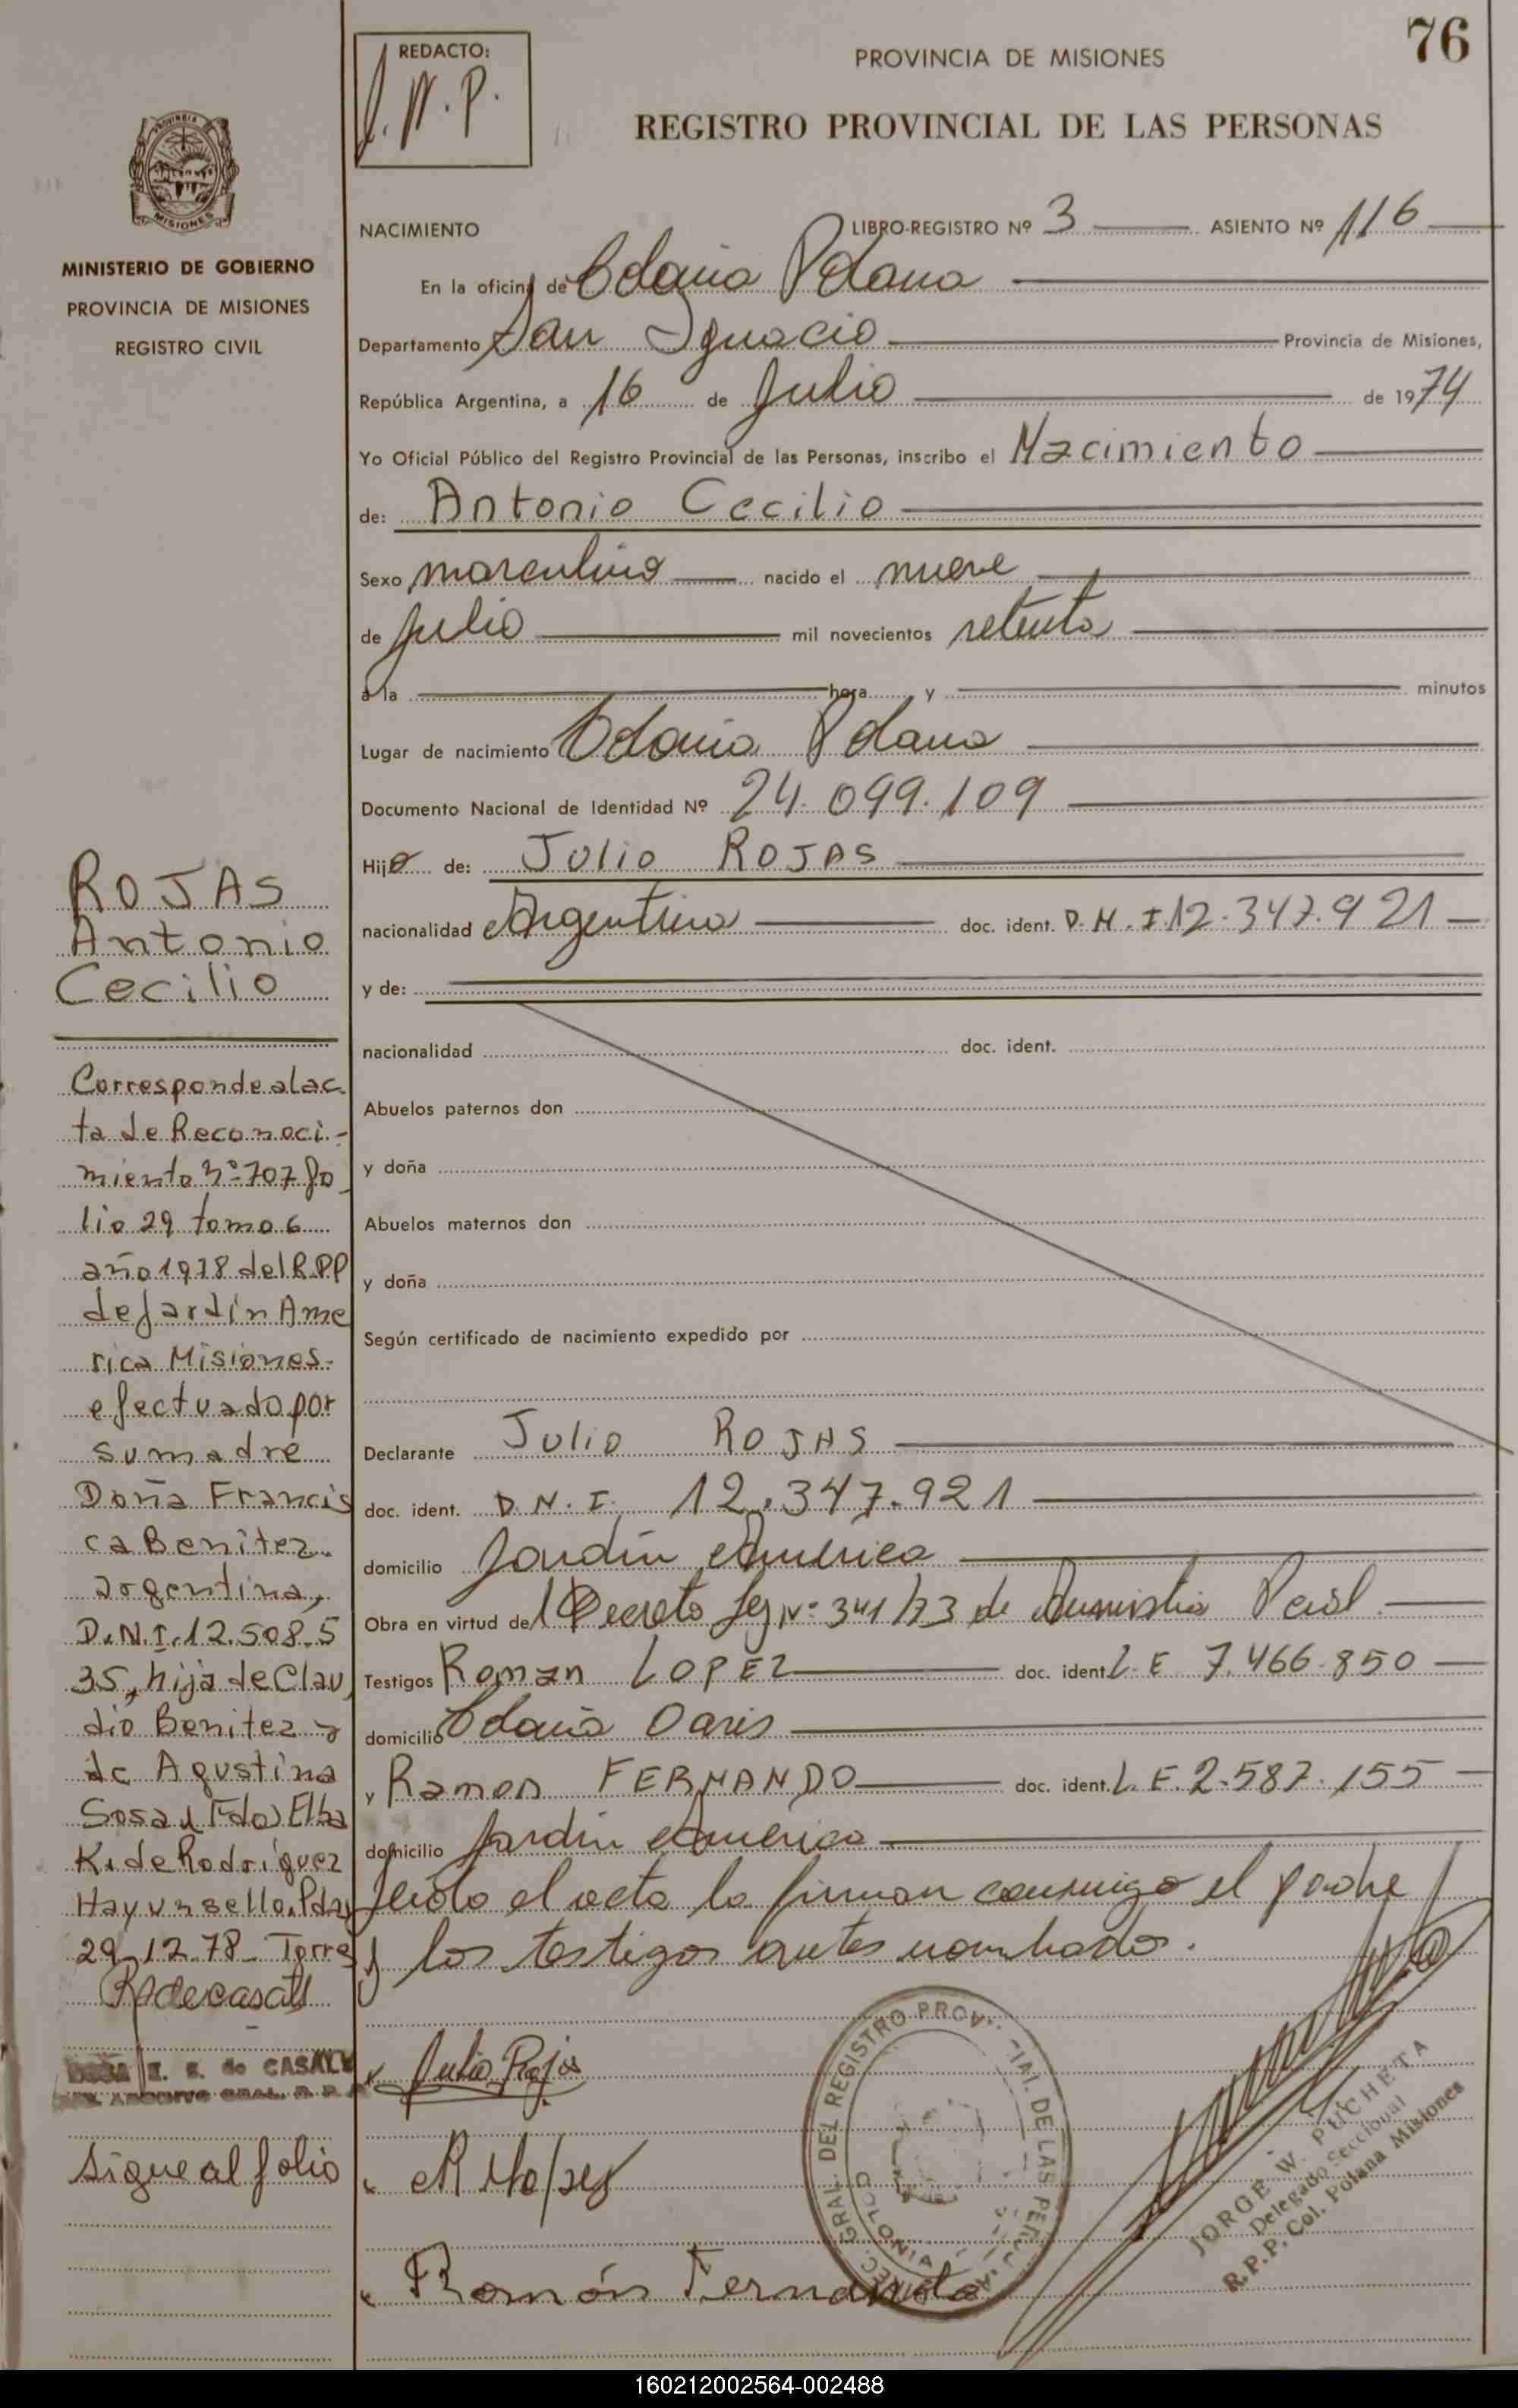 76
REDACTO:
PROVINCIA DE MISIONES
REGISTRO PROVINCIAL DE LAS PERSONAS
PROVINCIA DE
MISIONES
MINISTERIO DE GOBIERNO
PROVINCIA DE MISIONES
REGISTRO CIVIL
NACIMIENTO LIBRO-REGISTRO Nº 3 ASIENTO Nº 116
En la oficina de Colonia Polana
Departamento San Ignacio Provincia de Misiones,
República Argentina, a 16 de Julio de 1974
Yo Oficial Público del Registro Provincial de las Personas, inscribo el Nacimiento
de: Antonio Cecilio
Sexo masculino nacido el nueve
de Julio mil novecientos setenta
a la hora y minutos
Lugar de nacimiento Colonia Polana
Documento Nacional de Identidad Nº 24.099.109
Hijo de: Julio ROJAS
nacionalidad Argentina doc. ident. D.N.I. 12.347.921
y de:
nacionalidad doc. ident.
Abuelos paternos don
y doña
Abuelos maternos don
y doña
Según certificado de nacimiento expedido por
Declarante Julio ROJAS
doc. ident. D.N.I. 12.347.921
domicilio Jardín América
Obra en virtud del Decreto Ley Nº 341/73 de Amnistia
Testigos Roman LOPEZ doc. ident. L.E 7.466.850
domicilio Colonia Oasis
y Ramon FERNANDO doc. ident. L.E. 2.587.155
domicilio Jardin América
Leído el acta la firman conmigo el padre
y los testigos antes nombrados.
Julio Rojas
Ramón Fernando
ROJAS
Antonio
Cecilio
Corresponde al ac
ta de Reconoci-
miento nº 707 fo
lio 29 tomo 6
año 1978 del R.P.P
de Jardín Amé
rica Misiones.
efectuado por
su madre
Doña Francis
ca Benitez
argentina,
D.N.I. 12.508.5
35, hija de Clau
dio Benitez y
de Agustina
Sosa Fdo) Elba
K. de Rodríguez
Hay un sello. Pdas
29-12-78- Torre
E. S. de CASALS
ARCHIVO GRAL. R. P. P.
Sigue al folio
DEL REGISTRO PROV. DE LAS PER
COLONIA
JORGE W. PUCHETA
Delegado Seccional
R.P.P. Col. Polana Misiones
160212002564-002488